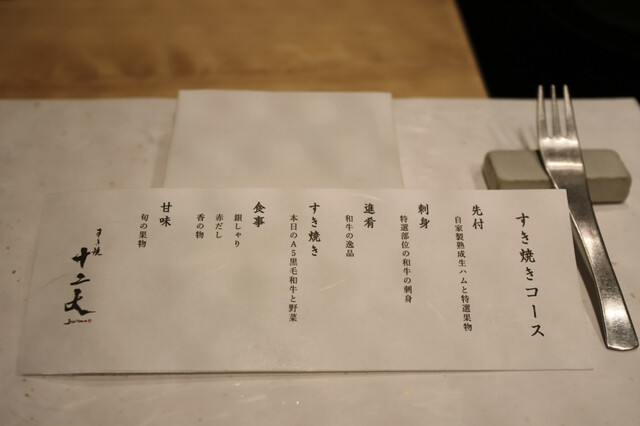 すき焼きコース
先付
自家製熟成生ハムと特選果物
刺身
特選部位の和牛の刺身
進肴
和牛の逸品
すき焼き
本日のA5黒毛和牛と野菜
食事
銀しゃり
赤だし
香の物
甘味
旬の果物
すき焼
十二天